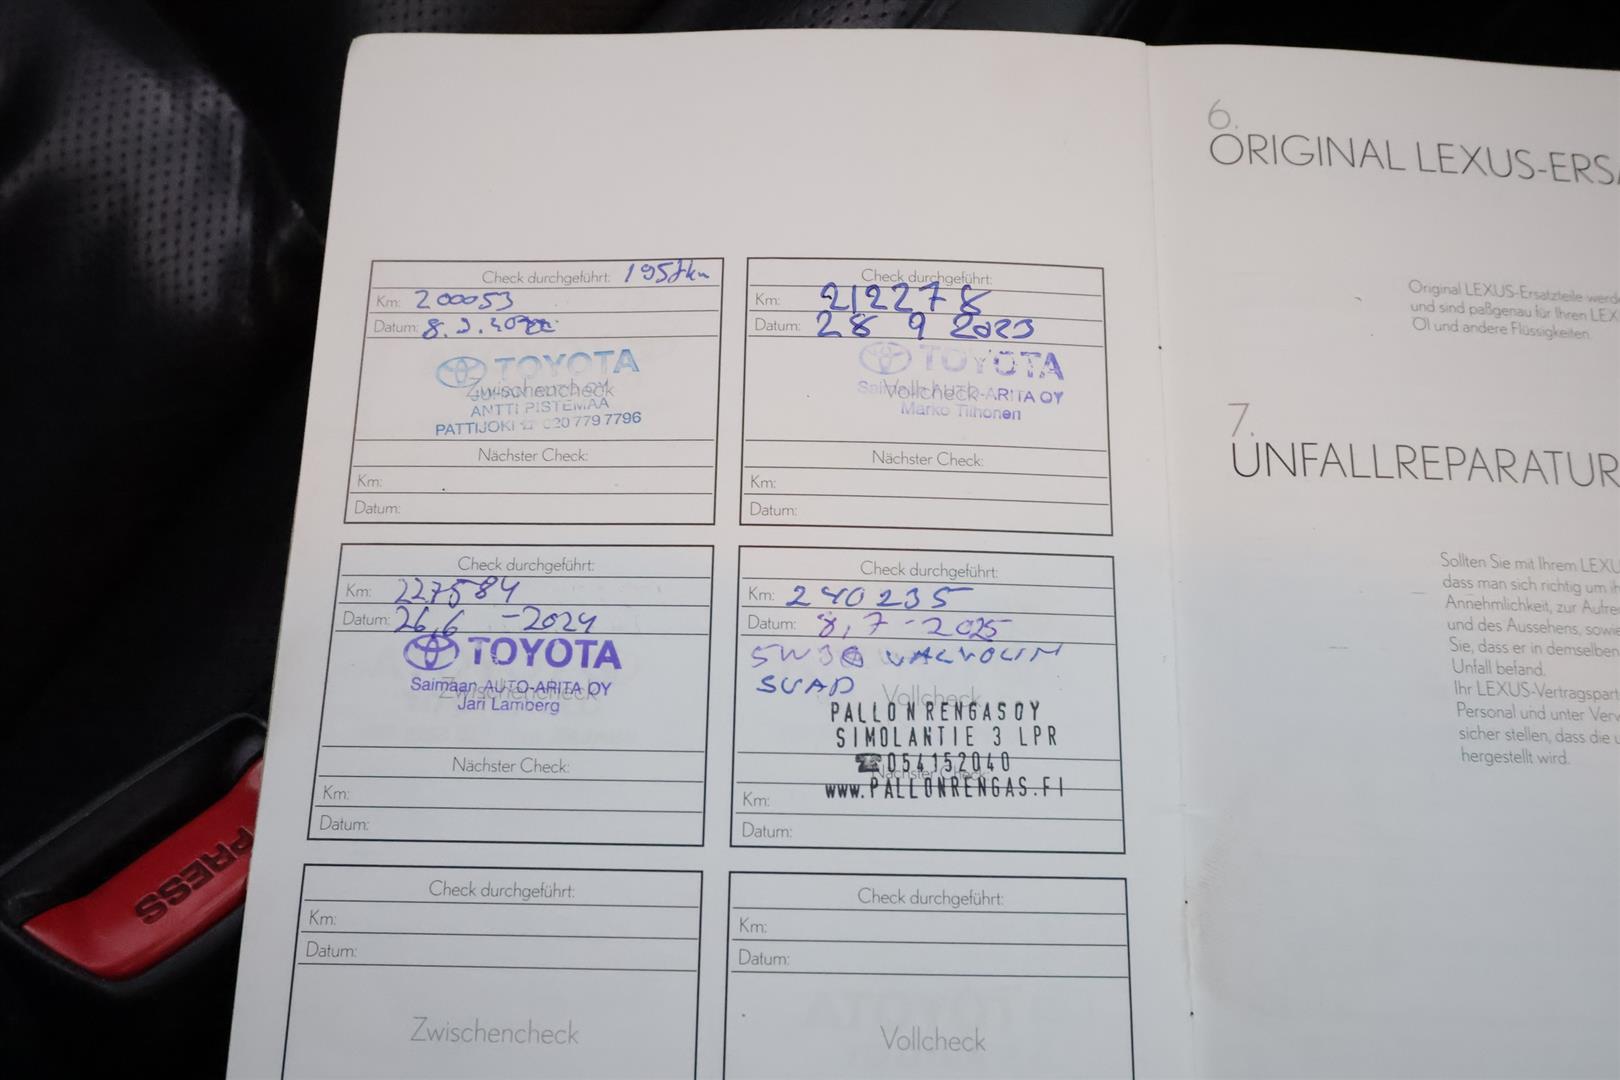 Check durchgeführt: 195tkm
Km: 200053
Datum: 8.9.2022
TOYOTA
Zwischencheck
ANTTI PISTEMAA
PATTIJOKI ☎ 020 779 7796
Nächster Check:
Km:
Datum:
Check durchgeführt:
Km: 212278
Datum: 28 9 2023
TOYOTA
Vollcheck
Saimaan AUTO-ARITA OY
Marko Tiihonen
Nächster Check:
Km:
Datum:
Check durchgeführt:
Km: 227584
Datum: 26,6 -2024
TOYOTA
Saimaan AUTO-ARITA OY
Zwischencheck
Jari Lamberg
Nächster Check:
Km:
Datum:
Check durchgeführt:
Km: 240235
Datum: 8,7-2025
5W30 VALVOLIN
SUAD
Vollcheck
PALLON RENGAS OY
SIMOLANTIE 3 LPR
☎054152040
Nächster Check:
www.PALLONRENGAS.FI
Km:
Datum:
Check durchgeführt:
Km:
Datum:
Zwischencheck
Check durchgeführt:
Km:
Datum:
Vollcheck
6.
ORIGINAL LEXUS-ERSA
Original LEXUS-Ersatzteile werde
und sind paßgenau für Ihren LEX
Öl und andere Flüssigkeiten.
7.
UNFALLREPARATUR
Sollten Sie mit Ihrem LEXU
dass man sich richtig um ih
Annehmlichkeit, zur Aufre
und des Aussehens, sowie
Sie, dass er in demselben
Unfall befand.
Ihr LEXUS-Vertragspart
Personal und unter Verw
sicher stellen, dass die u
hergestellt wird.
PRESS